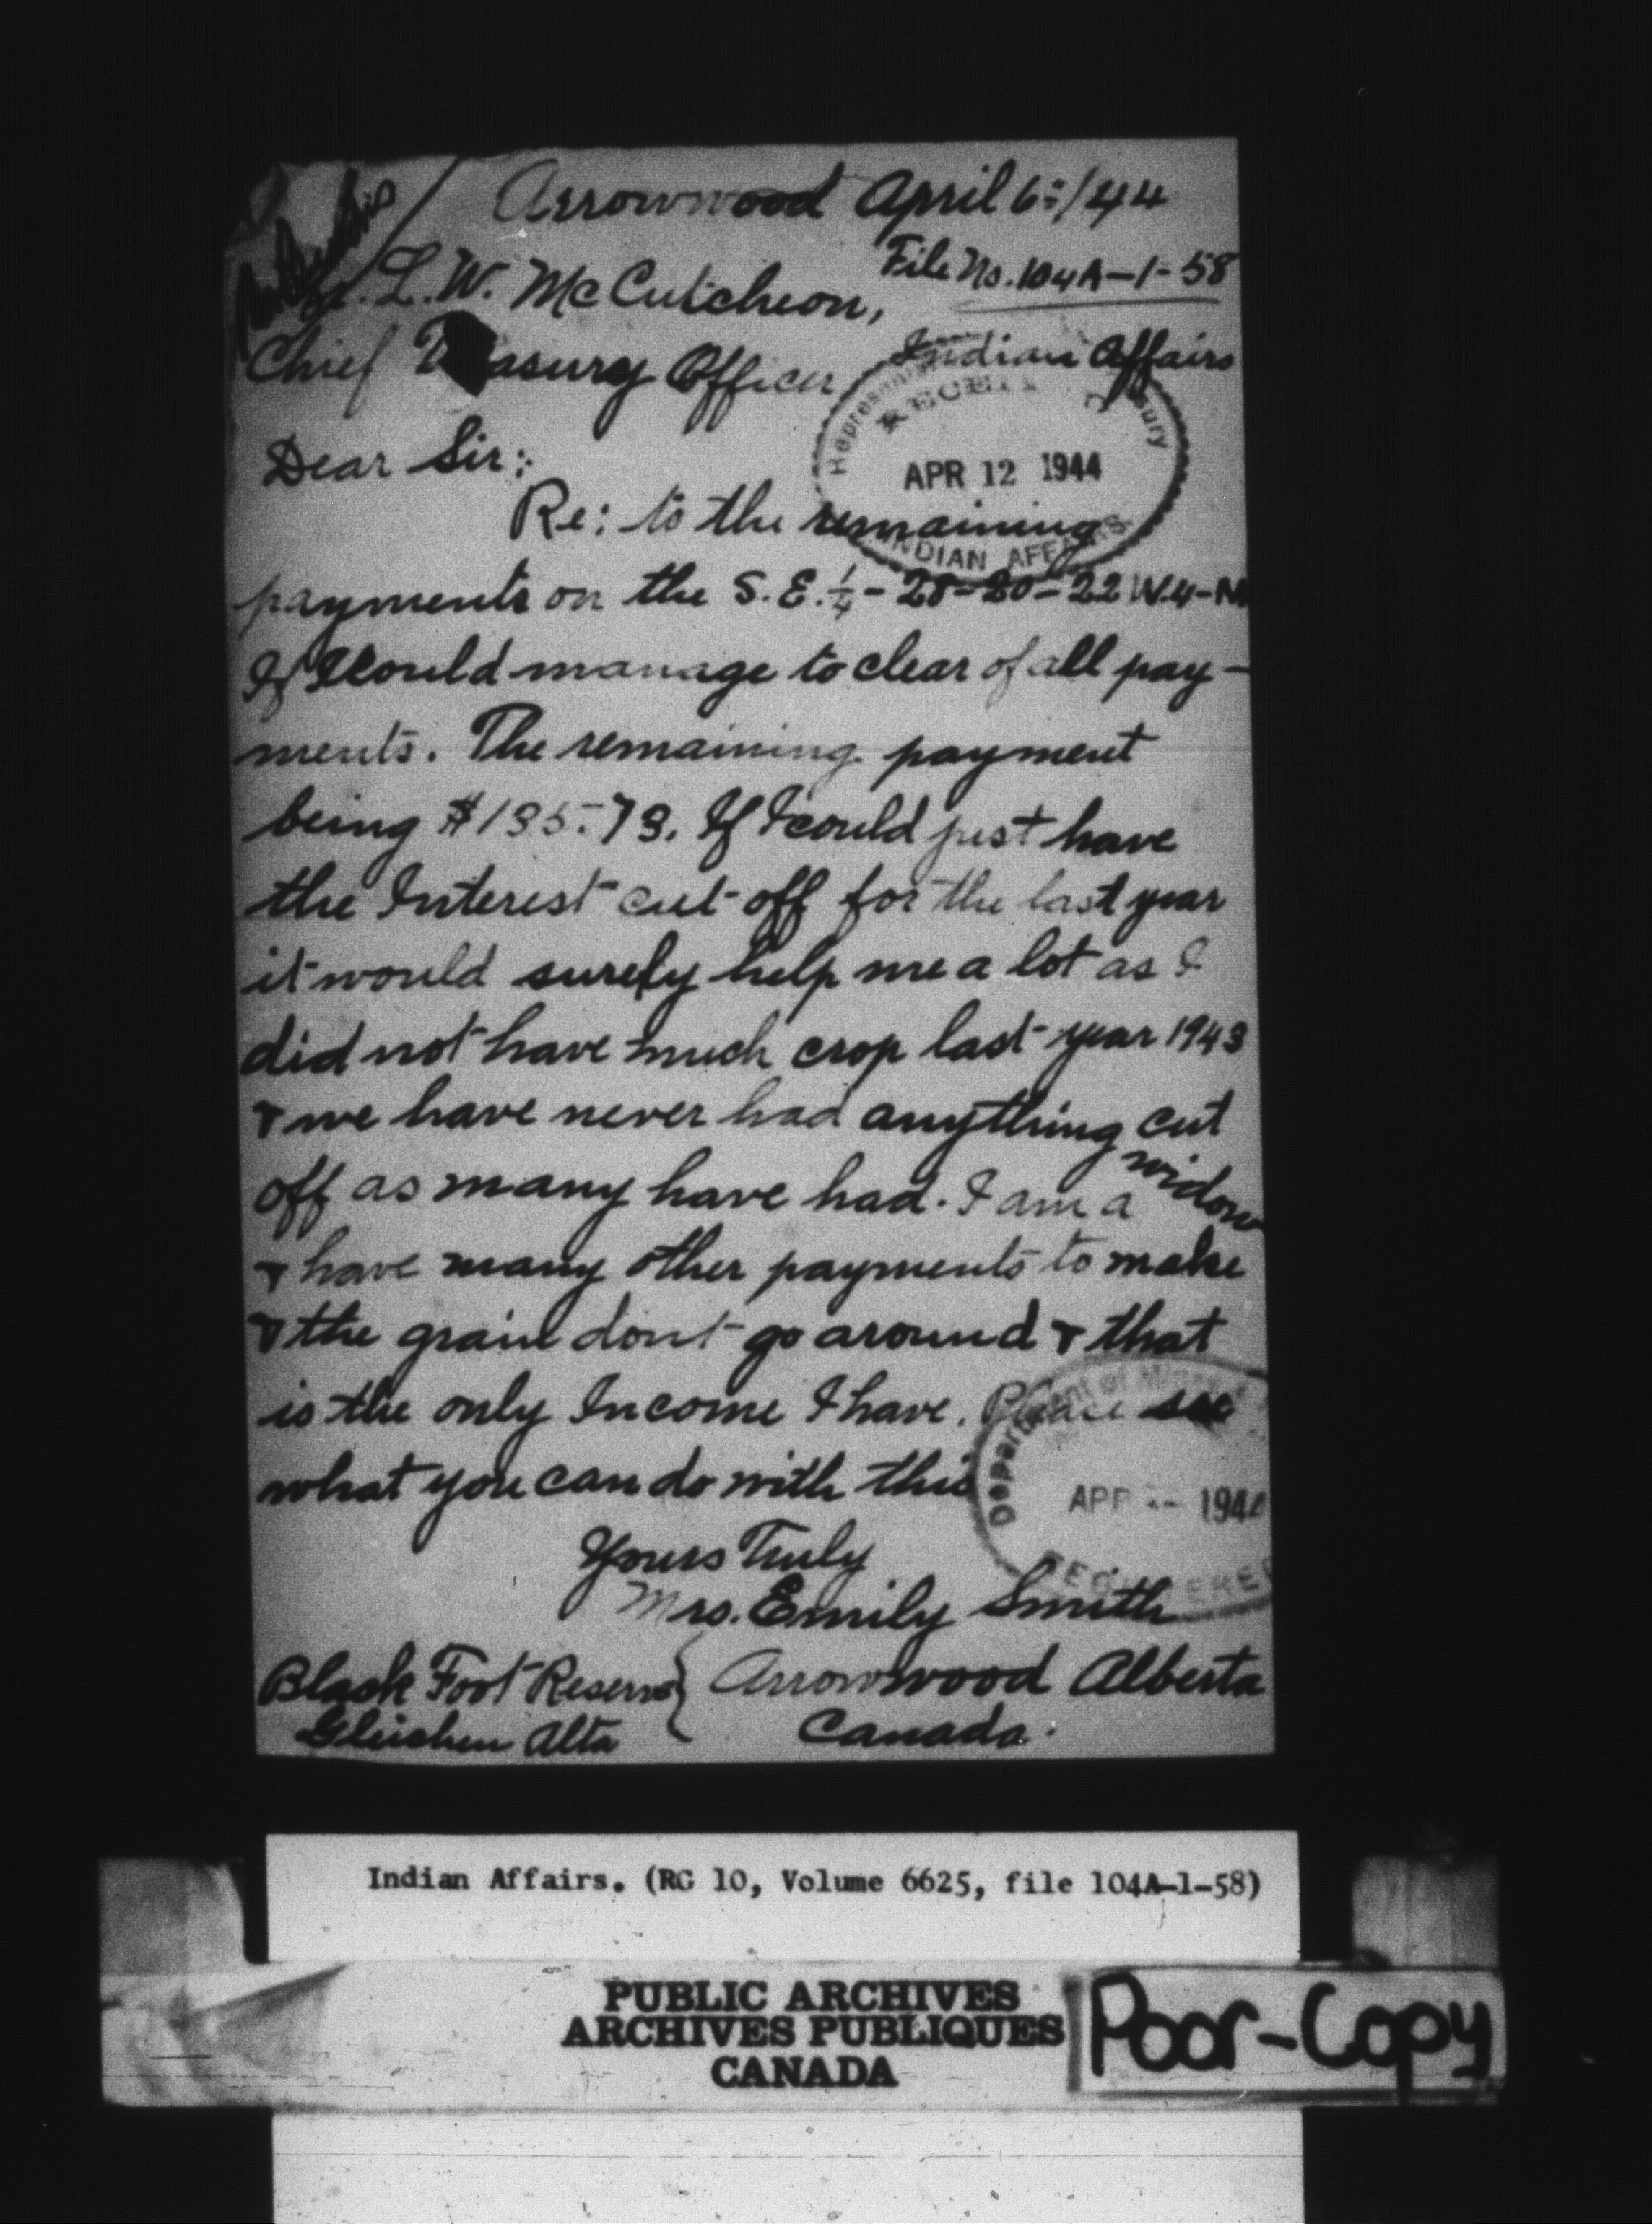 Arrowwood April 6:/44
File No. 104A-1-58
Mr. L. W. McCutcheon,
Chief Treasury Officer Indian Affairs
RECEI
APR 12 1944
INDIAN AFFAIRS
Dear Sir:
Re: to the remaining
payments on the S.E. ¼ - 28-20-22 W.4-M
If I could manage to clear of all pay-
ments. The remaining payment
being $135.73. If I could just have
the Interest cut off for the last year
it would surely help me a lot as I
did not have much crop last year 1943
& we have never had anything cut
off as many have had. I am a widow
& have many other payments to make
& the grain dont go around & that
is the only Income I have. Please see
what you can do with this
Department of Mines
APR 1944
REGISTERED
Yours Truly
Mrs. Emily Smith
Black Foot Reserve } Arrowwood Alberta
Gleichen Alta Canada.
Indian Affairs. (RG 10, Volume 6625, file 104A-1-58)
PUBLIC ARCHIVES
ARCHIVES PUBLIQUES
CANADA
Poor-Copy